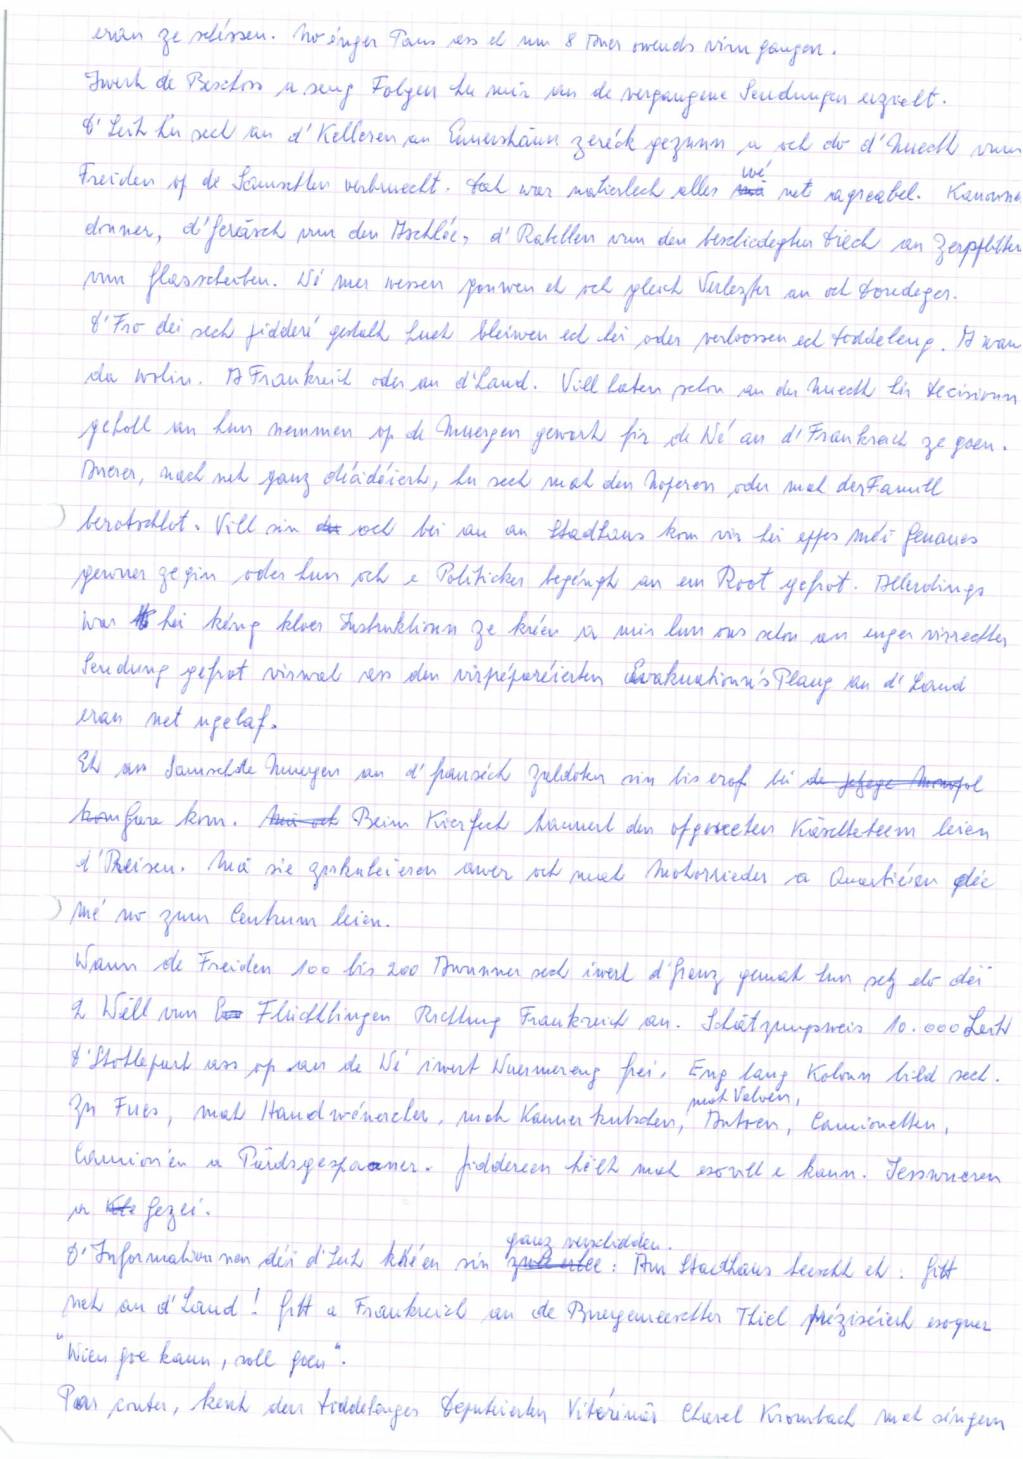 eran ze schéissen. No énger Paus ass et um 8 Auer owends virun gaangen.
Iwert de Beschoss a seng Folgen hu mir an de vergangene Sendungen erzielt.
D'Leit hu sech an d'Kelleren an Ennerstänn zeréck gezunn a och do d'Nuecht vum
Freiden op de Samschten verbruecht. Dat war natierlech alles wé net agreabel. Kanoune
donner, d'Geräisch vun den Aschléi, d'Rabellen vun den beschiedegten Diech an Zerpflütter
vun Glasscheiben. Wé mer wessen gouwen et och gleich Verletzter an och Doudeger.
D'Fro déi sech jidderé gestallt huet bleiwen ech hei oder verloossen ech Diddeleng. A wan
da wuhin. A Frankreich oder an d'Land. Vill haten schon an der Nuecht hir Decisioun
geholl an hun nemmen op de Muergen gewart fir de Wé an d'Frankreich ze goen.
Anerer, nach net ganz décidéiert, hu sech mat den Noperen oder mat der Famill
berotschlot. Vill sin och bei an an Stadhaus kom vir hei eppes méi Genaues
gewuer ze gin oder hun och e Politicker begéngt an em Root gefrot. Allerdings
war hei kéng kloer Instruktioun ze kréien a mir hun ons schon an enger viireschter
Sendung gefrot virwat ass den virpréparéierten Evakuatiouns Plang an d'Land
eran net ugelaf.
Et ass Samschde Muergen an d'franséich Zaldoten sin bis erof bei
Gare kom. Beim Kierfecht hannert den opgeriichten Käseltecteem leien
d'Preisen. Mä sie zirkuléieren awer och mat Motorrieder a Quartiéren déi
mé no zum Centrum leien.
Wann de Freiden 100 bis 200 Awunner sech iwert d'Grenz gemat hun setz elo déi
2. Well vun Flüchtlingen Richtung Frankreich an. Schätzungsweis 10.000 Leit
D'Strooss ass op an de Wé iwert Wuermereng frei. Eng lang Kolonn bild sech.
Zu Fuss, mat Handwénercher, mat Kannerkutschen, mat Veloen, Autoen, Camionetten,
Camionen a Päerdsgespaaner. Jiddereen hëlt mat esouvill e kann. Iesswueren
a Gezei.
D'Informatiounen déi d'Leit kréien sin ganz verschidden: Am Stadhaus heescht et: Gitt
net an d'Land! Gitt a Frankreich an de Buergemeeschter Thiel préziséiert esouguer
"Wien goe kann, soll goen".
Par conter, kënt den Diddelénger Deputéierten Vétérinär Charel Krombach mat sengem